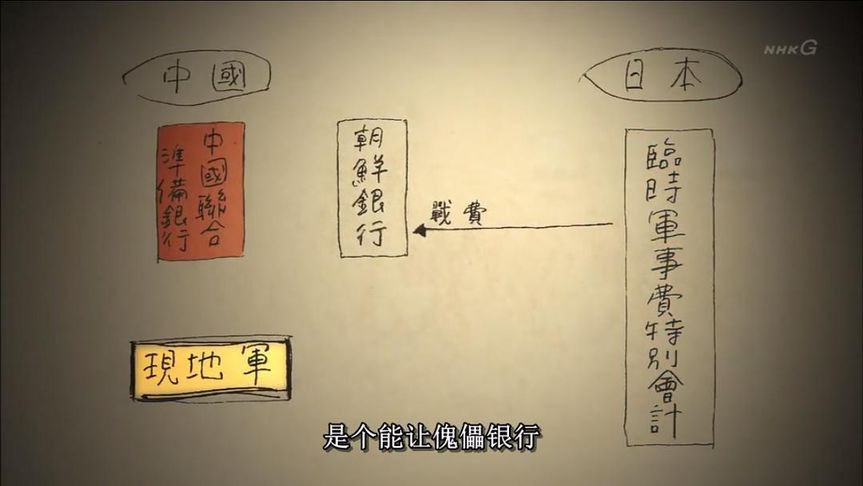 NHK G
中國
日本
中國聯合
準備銀行
朝鮮銀行
戰費
臨時軍事費特別會計
現地軍
是个能让傀儡银行